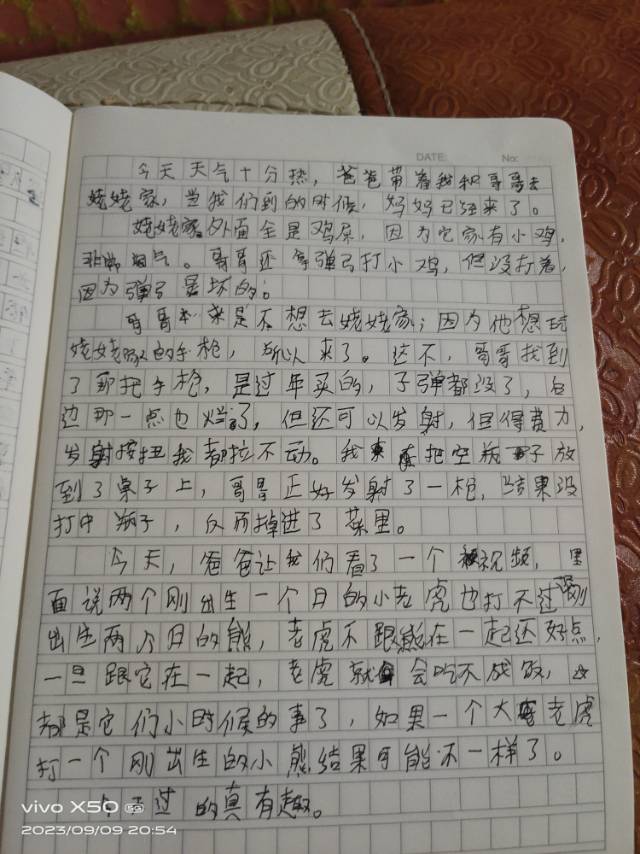 DATE:
No:
今天天气十分热，爸爸带着我和哥哥去
姥姥家，当我们到的时候，妈妈已经来了。
姥姥家外面全是鸡屎，因为它家有小鸡，
非常臭气。哥哥还拿弹弓打小鸡，但没打着，
因为弹弓是坏的。
哥哥本来是不想去姥姥家；因为他想玩
姥姥家的手枪，所以来了。这不，哥哥找到
了那把手枪，是过年买的，子弹都没了，后
边那一点也烂了，但还可以发射，但得费力，
发射按扭我都拉不动。我把空瓶子放
到了桌子上，哥哥正好发射了一枪，结果没
打中瓶子，反而掉进了菜里。
今天，爸爸让我们看了一个视频，里
面说两个刚出生一个月的小老虎也打不过刚
出生两个月的熊，老虎不跟熊在一起还好点，
一旦跟它在一起，老虎就会吃不成饭，
都是它们小时候的事了，如果一个大老虎
打一个刚出生的小熊结果可能不一样了。
今天过的真有趣。
vivo X50 5G
2023/09/09 20:54